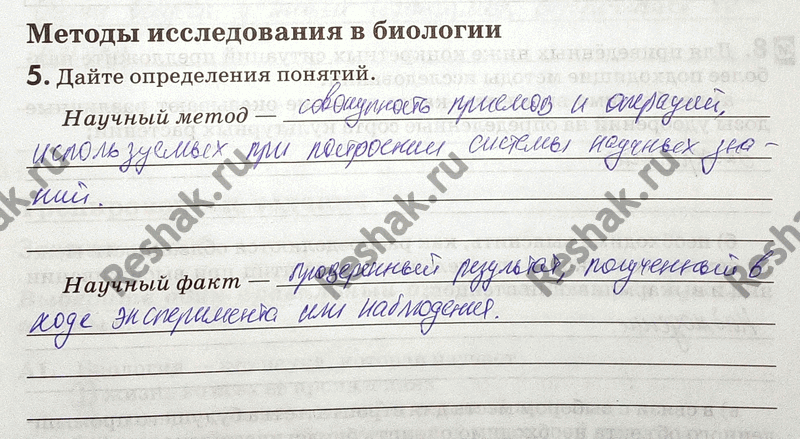 Методы исследования в биологии
5. Дайте определения понятий.
Научный метод — совокупность приемов и операций,
используемых при построении системы научных зна-
ний.
Научный факт — проверенный результат, полученный в
ходе эксперимента или наблюдения.
Reshak.ru
Reshak.ru
Reshak.ru
Reshak.ru
Reshak.ru